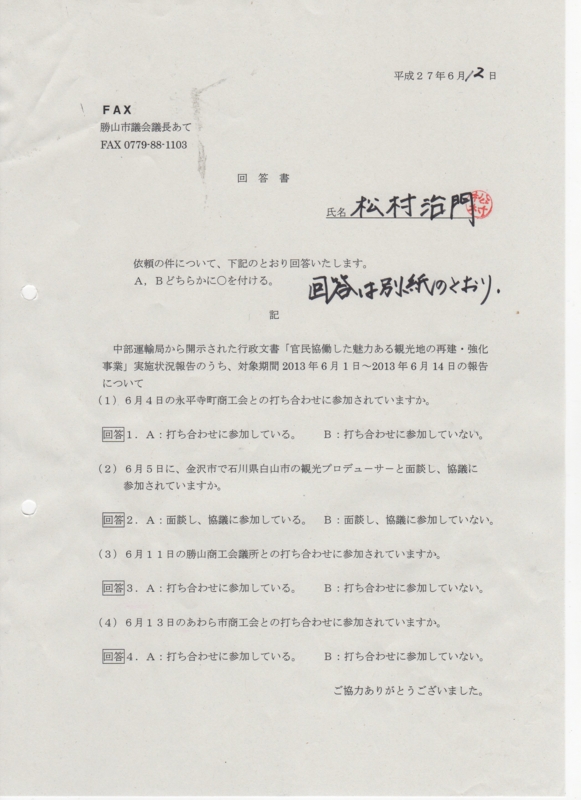 平成27年6月12日
FAX
勝山市議会議長あて
FAX 0779-88-1103
回 答 書
氏名 松村治門 松村
依頼の件について、下記のとおり回答いたします。
A,Bどちらかに○を付ける。
回答は別紙のとおり.
記
中部運輸局から開示された行政文書「官民協働した魅力ある観光地の再建・強化
事業」実施状況報告のうち、対象期間2013年6月1日~2013年6月14日の報告
について
(1)6月4日の永平寺町商工会との打ち合わせに参加されていますか。
回答1.A:打ち合わせに参加している。 B:打ち合わせに参加していない。
(2)6月5日に、金沢市で石川県白山市の観光プロデューサーと面談し、協議に
参加されていますか。
回答2.A:面談し、協議に参加している。 B:面談し、協議に参加していない。
(3)6月11日の勝山商工会議所との打ち合わせに参加されていますか。
回答3.A:打ち合わせに参加している。 B:打ち合わせに参加していない。
(4)6月13日のあわら市商工会との打ち合わせに参加されていますか。
回答4.A:打ち合わせに参加している。 B:打ち合わせに参加していない。
ご協力ありがとうございました。